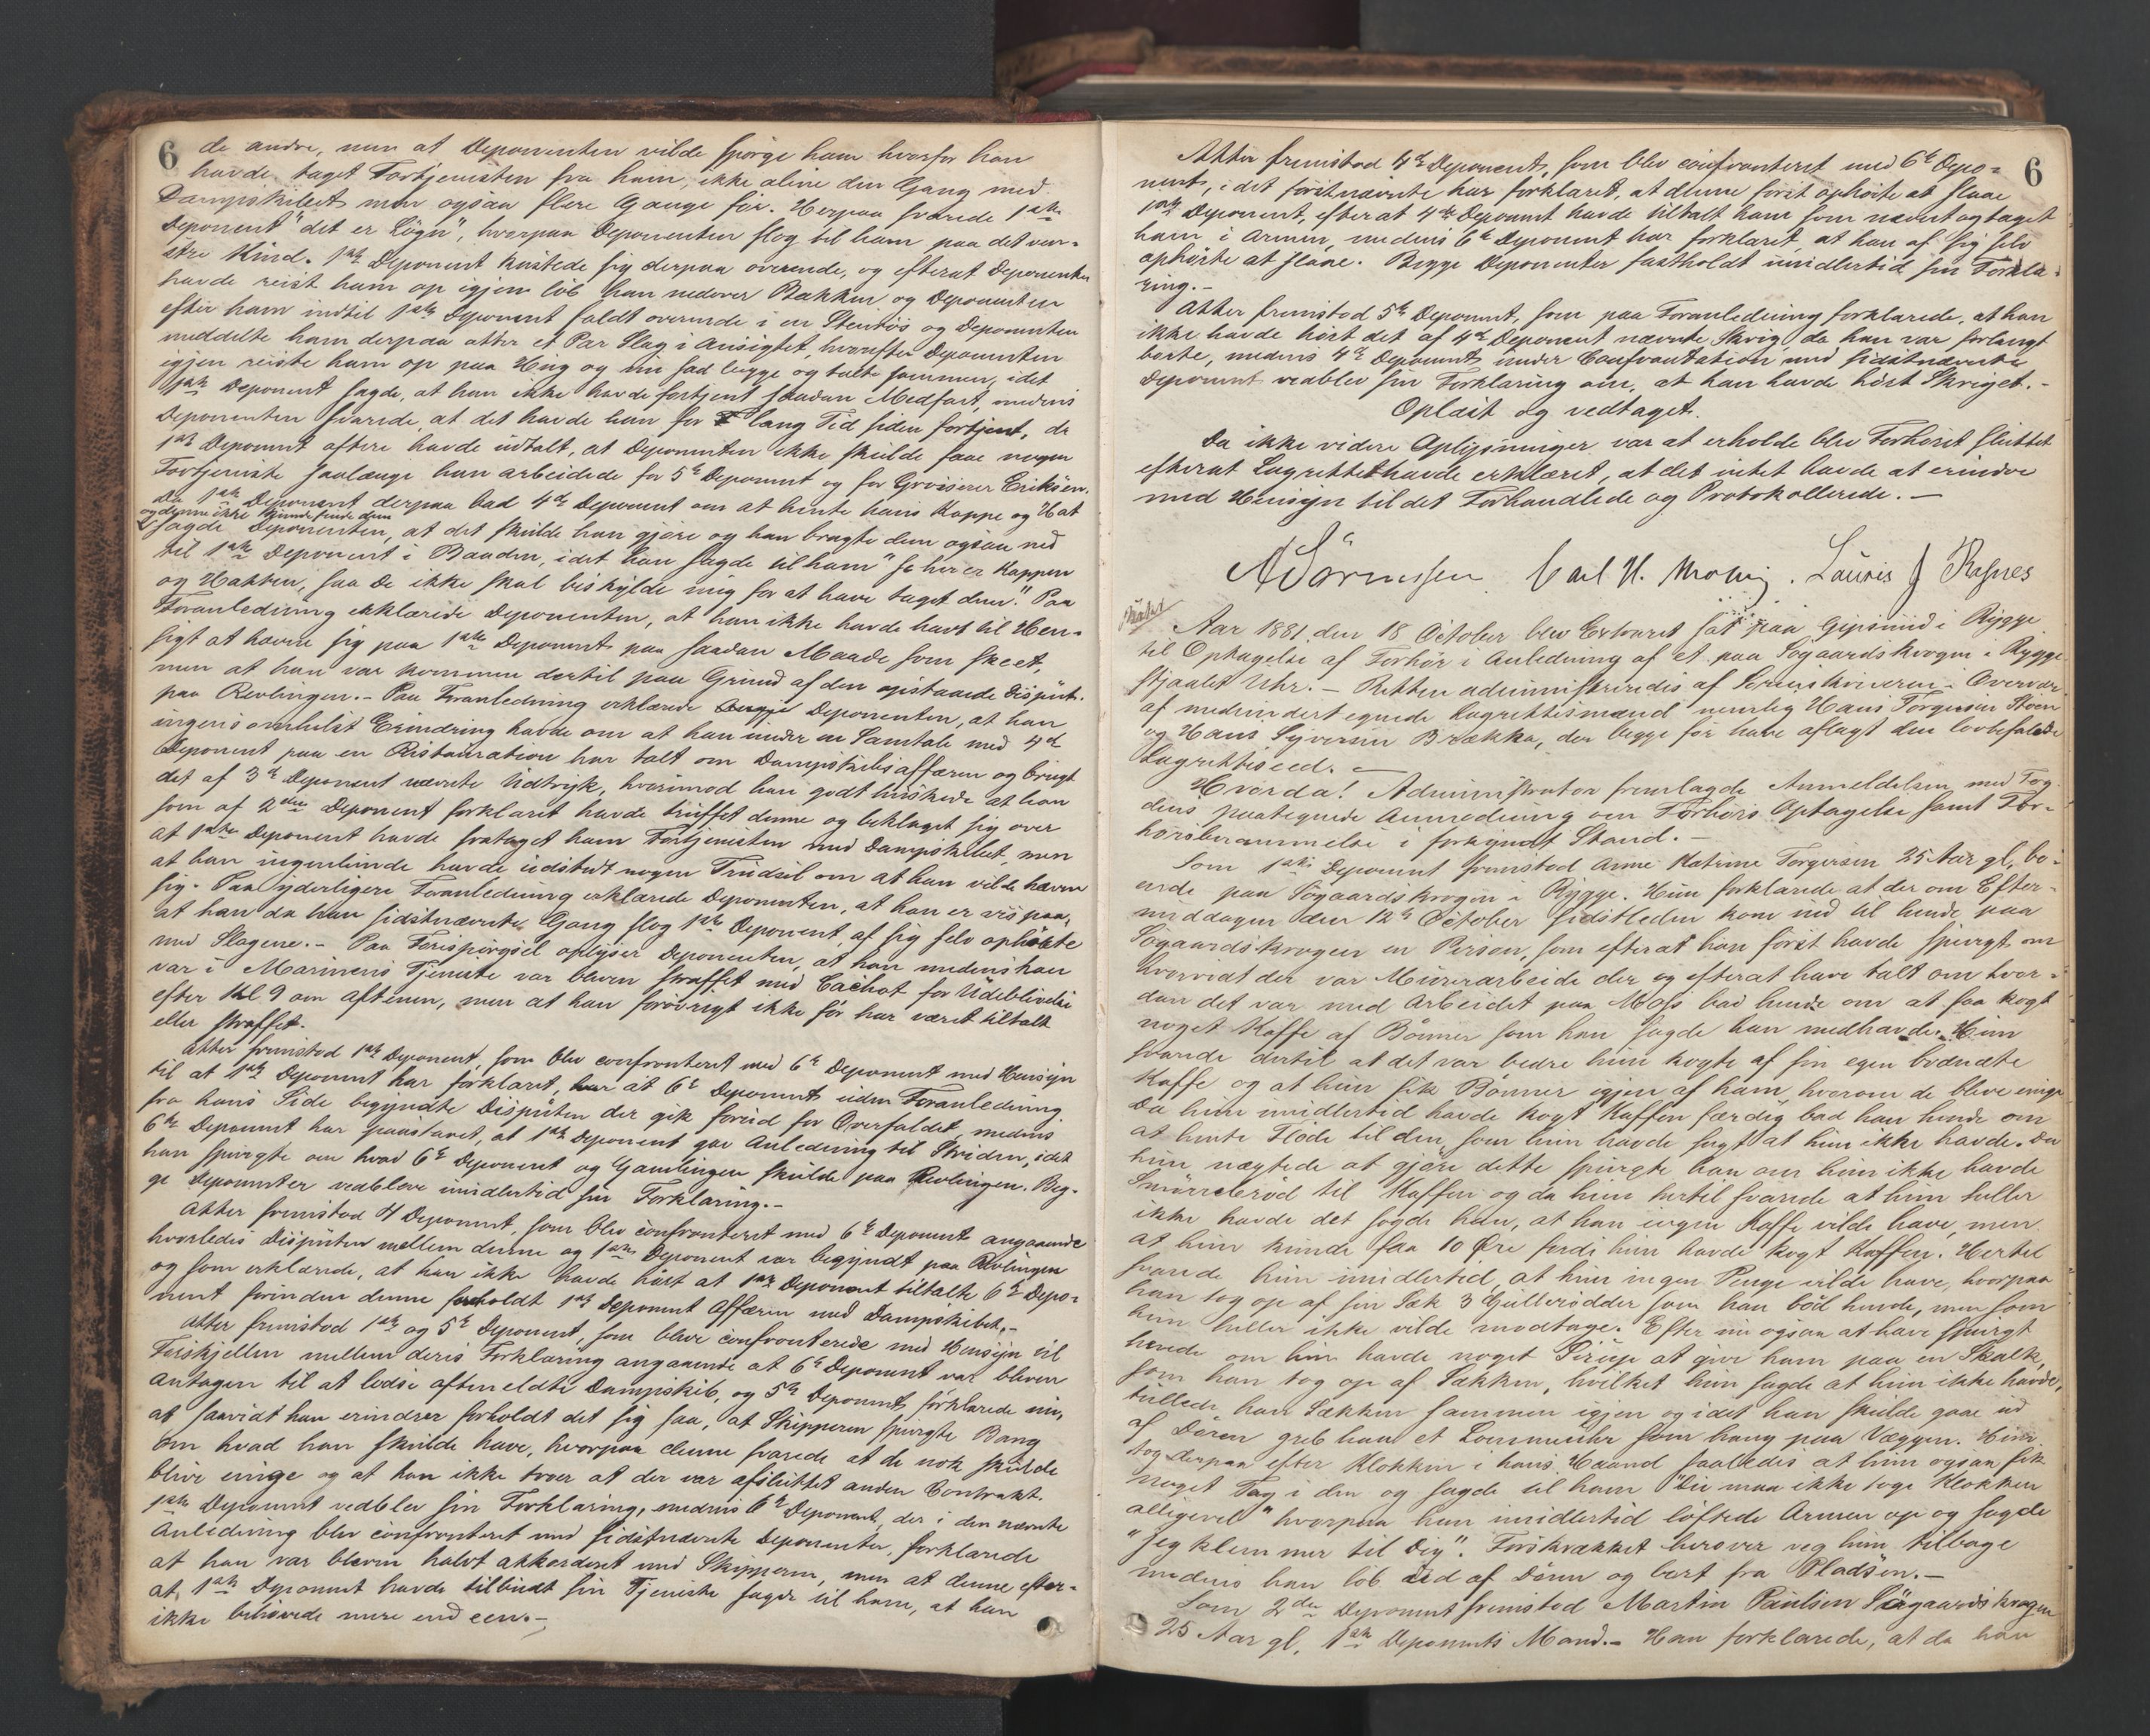 6
de andre, men at Deponenten vilde spörge ham hvorfor han
havde taget Fortjenesten fra ham, ikke alene den Gang med
Dampskibet men ogsaa flere Gange för. Herpaa svarede 1ste
Deponent "det er Lögn", hvorpaa Deponenten slog til ham paa det ven-
stre Kind. 1ste Deponent kastede sig derpaa overende, og efterat Deponenten
havde reist ham op igjen löb han nedover Bakken og Deponenten
efter ham indtil 1ste Deponent faldt overende i en Stenrös og Deponenten
meddelte ham derpaa atter et Par Slag i Ansigtet, hvorefter Deponenten
igjen reiste ham op paa Hug og nu sad begge og talte sammen, idet
1ste Deponent sagde, at han ikke havde fortjent saadan Medfart, medens
Deponenten svarede, at det havde han for lang Tid siden fortjent, da
1ste Deponent oftere havde udtalt, at Deponenten ikke skulde faae nogen
Fortjeneste saalænge han arbeidede for 5te Deponent og for Grosserer Eriksen.
Da 1ste Deponent derpaa bad 4de Deponent om at hente hans Kappe og Hat
og denne ikke kunde finde dem
sagde Deponenten, at det skulde han gjöre og han bragte dem ogsaa ned
til 1ste Deponent i Baaden, idet han sagde til ham "se her er Kappen
og Hatten, saa De ikke skal beskylde mig for at have taget dem." Paa
Foranledning erklærede Deponenten, at han ikke havde havt til Hen-
sigt at hævne sig paa 1ste Deponent paa saadan Maade som skeet,
men at han var kommen dertil paa Grund af den opstaaede Disput
paa Revlingen. - Paa Foranledning erklærede Deponenten, at han
ingensomhelst Erindring havde om at han under en Samtale med 4de
Deponent paa en Restauration har talt om Dampskibsaffæren og brugt
det af 3de Deponent nævnte Udtryk, hvorimod han godt huskede at han
som af 2den Deponent forklaret havde truffet denne og beklaget sig over
at 1ste Deponent havde frataget ham Fortjenesten med Dampskibet, men
at han ingenlunde havde udstedt nogen Trudsel om at han vilde hævne
sig. Paa yderligere Foranledning erklærede Deponenten, at han er vis paa,
at han da han sidstnævnte Gang slog 1ste Deponent, af sig selv ophörte
med Slagene. - Paa Forespörgsel oplyser Deponenten, at han medens han
var i Marinens Tjeneste var bleven straffet med Cachot for Udeblivelse
efter Kl 9 om Aftenen, men at han forövrigt ikke för har været tiltalt
eller straffet.
Atter fremstod 1ste Deponent, som blev confronteret med 6te Deponent med Hensyn
til at 1ste Deponent har forklaret, at 6te Deponent uden Foranledning
fra hans Side begyndte Disputen der gik forud for Overfaldet, medens
6te Deponent har paastaaet, at 1ste Deponent gav Anledning til Striden, idet
han spurgte om hvad 6te Deponent og Gamlingen skulde paa Revlingen. Beg-
ge Deponenter vedbleve imidlertid sin Forklaring. -
Atter fremstod 4 Deponent, som blev confronteret med 6te Deponent angaaende
hvorledes Disputen mellem denne og 1ste Deponent var begyndt paa Revlingen
og som erklærede, at han ikke havde hört at 1ste Deponent tiltalte 6te Depo-
nent forinden denne foreholdt 1ste Deponent Affæren med Dampskibet. -
Atter fremstod 1ste og 5te Deponent, som bleve confronterede med Hensyn til
Forskjellen mellem deres Forklaring angaaende at 6te Deponent var bleven
antagen til at lodse oftmeldte Dampskib, og 5te Deponent forklarede nu,
at saavidt han erindrer forholdt det sig saa, at Skipperen spurgte Bang
om hvad han skulde have, hvorpaa denne svarede at de nok skulde
blive enige og at han ikke troer at der var afsluttet anden Contrakt.
1ste Deponent vedblev sin Forklaring, medens 6te Deponent, der i den nævnte
Anledning blev confronteret med sidstnævnte Deponenter, forklarede
at han var bleven halvt akkorderet med Skipperen, men at denne efter-
at 1ste Deponent havde tilbudt sin Tjeneste sagde til ham, at han
ikke behövede mere end een. -
6
Atter fremstod 4de Deponent, som blev confronteret med 6te Depo-
nent, idet förstnævnte har forklaret, at denne först ophörte at slaae
1ste Deponent, efterat 4de Deponent havde tiltalt ham som nævnt og taget
ham i Armen, medens 6te Deponent har forklaret, at han af sig selv
ophörte at slaae. Begge Deponenter fastholdt imidlertid sin Forkla-
ring. -
Atter fremstod 5te Deponent, som paa Foranledning forklarede, at han
ikke havde hört det af 4de Deponent nævnte Skrig, da han var forlangt
borte, medens 4de Deponent under Confrontation med sidstnævnte
Deponent vedblev sin Forklaring om, at han havde hört Skriget. -
Oplæst og vedtaget.
Da ikke videre Oplysninger var at erholde blev Forhöret sluttet
efterat Lagrettet havde erklæret, at det intet havde at erindre
med Hensyn til det Forhandlede og Protokollerede. -
A Sörenssen Carl H. Lauris J Rafnes
Aar 1881 den 18 October blev Extraret sat paa Gipsund i Rygge
til Optagelse af Forhör i Anledning af et paa Sögaardskrogen i Rygge
stjaalet Uhr. - Retten administreredes af Sorenskriveren. Overvær
af medundertegnede Lagrettesmænd nemlig Hans Torgersen Støen
og Hans Syversen Brække, der begge för have aflagt den lovbefalede
Lagretteseed. -
Hvorda! Administrator fremlagde Anmeldelsen med Fog-
dens paategnede Anmodning om Forhörs Optagelse samt For-
hörsberammelse i forkyndt Stand. -
Som 1ste Deponent fremstod Anne Katrine Torgersen 25 Aar gl, bo-
ende paa Sögaardskrogen i Rygge. Hun forklarede at der om Efter-
middagen den 12te October sidstleden kom ind til hende paa
Sögaardskrogen en Person, som efterat han först havde spurgt om
hvorvidt der var Murerarbeide der og efterat have talt om hvor-
dan det var med Arbeidet paa Moss bad hende om at faa kogt
noget Kaffe af Bönner som han sagde han medhavde. Hun
svarede dertil at det var bedre hun kogte af sin egen brændte
Kaffe og at hun fik Bönner igjen af ham hvorom de bleve enige
Da hun imidlertid havde kogt Kaffen færdig bad han hende om
at hente Flöde til den, som hun havde sagt at hun ikke havde. Da
hun nægtede at gjöre dette spurgte han om hun ikke havde
Smörrebröd til Kaffen og da hun hertil svarede at hun heller
ikke havde det sagde han, at han ingen Kaffe vilde have, men
at hun kunde faa 10 Öre fordi hun havde kogt Kaffen. Hertil
svarede hun imidlertid, at hun ingen Penge vilde have, hvorpaa
han tog op af sin Sæk 3 Gulerödder som han böd hende, men som
hun heller ikke vilde modtage. Efter nu ogsaa at have spurgt
hende om hun havde noget Sirup at give ham paa en Skalk,
som han tog op af Sækken, hvilket hun sagde at hun ikke havde,
rullede han Sækken sammen igjen og idet han skulde gaae ud
af Dören greb han et Lommeuhr som hang paa Væggen. Hun
tog derpaa efter Klokken i hans Haand saaledes at hun ogsaa fik
noget Tag i den og sagde til ham "Du maa ikke tage Klokken
alligevel" hvorpaa han imidlertid löftede Armen op og sagde
"Jeg klemmer til Dig". Forskrækket herover veg hun tilbage
medens han löb ud af Dören og bort fra Pladsen. -
Som 2den Deponent fremstod Martin Paulsen Sögaardskrogen
25 Aar gl, 1ste Deponents Mand. - Han forklarede, at da han